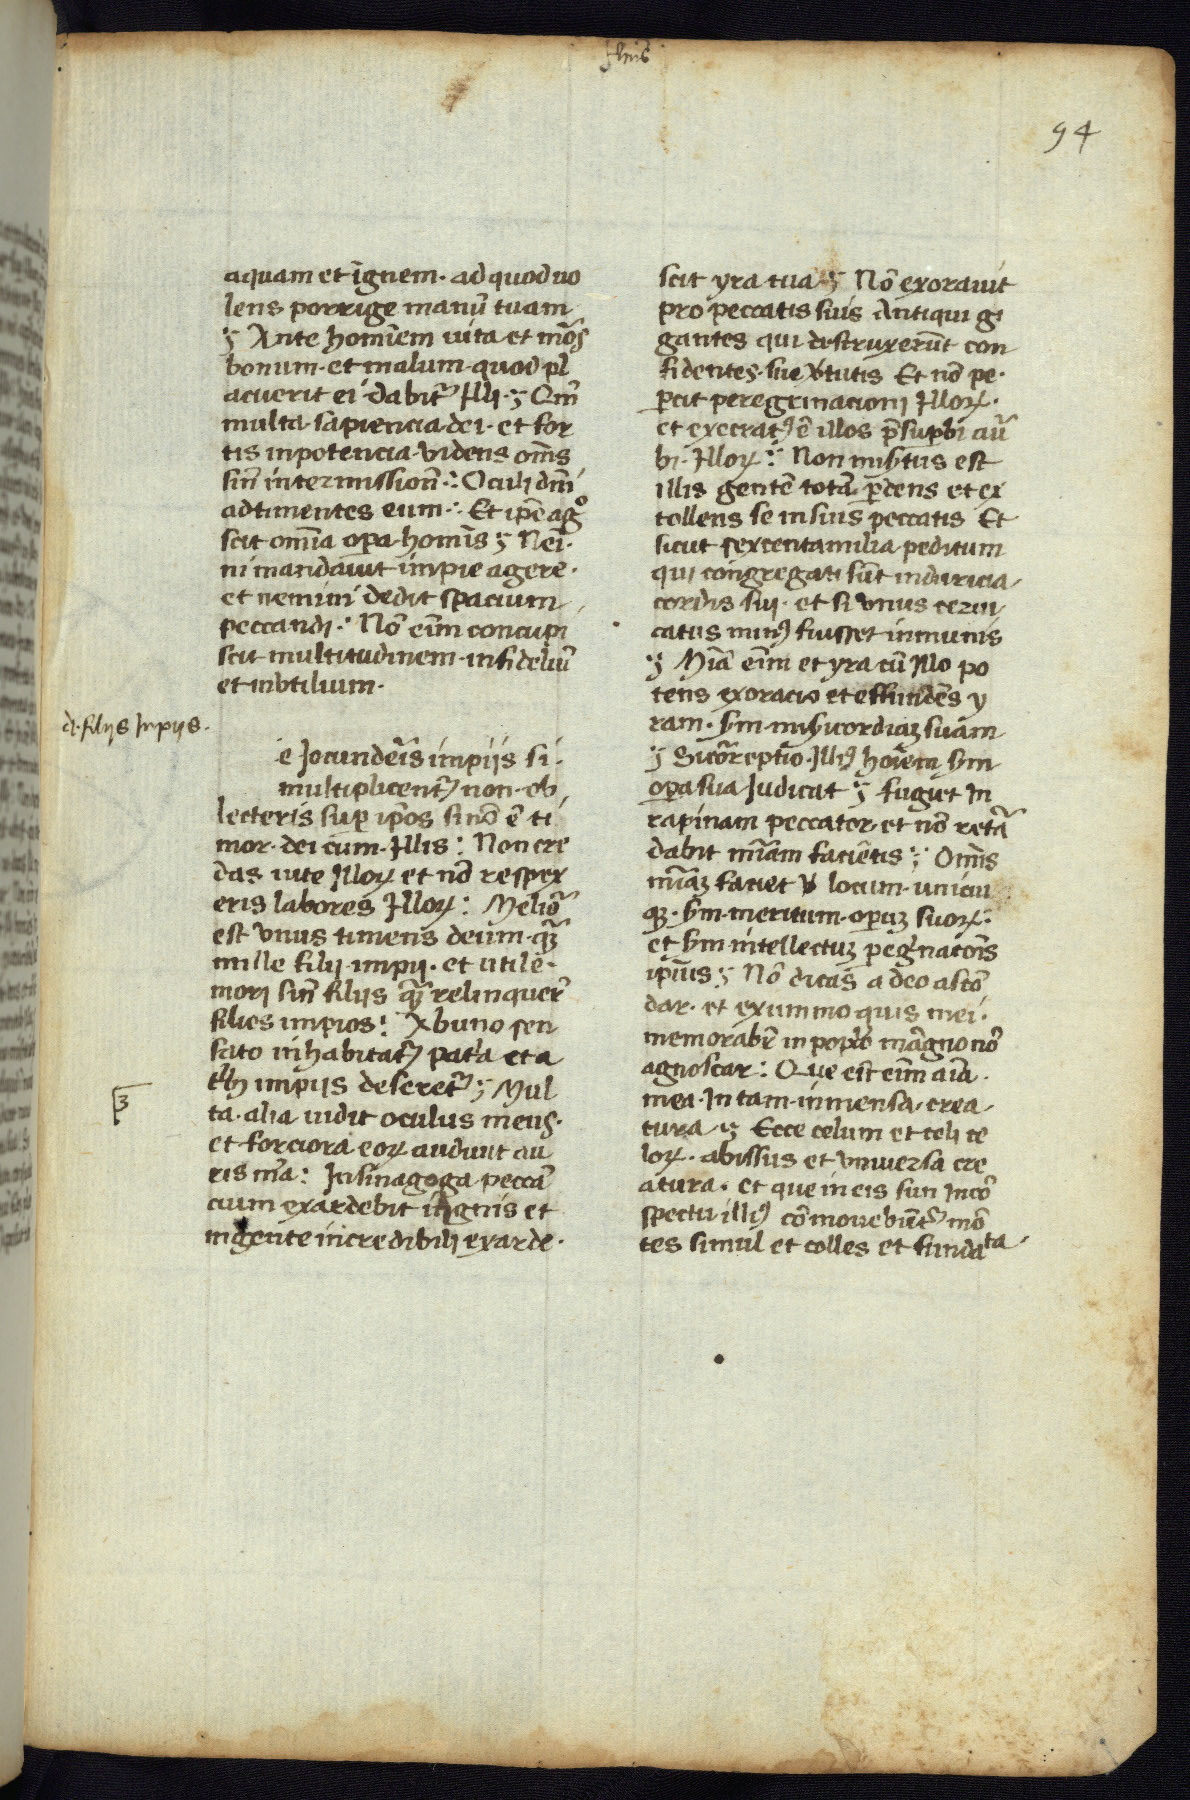 94
aquam et ignem · ad quod uo
lens porrige manū tuam
ȝ Ante homīem uita et mōs
bonum · et malum · quod pl
acuerit ei · dabit᷑ illi · ȝ Qm̄
multa · sapiencia · dei · et for
tis in potencia · videns om̄s
sin̄ intermission̄ ∴ Oculi dn̄i
ad timentes eum ∴ Et ip̄e agͦ
scit om̄ia op̄a · homis̄ ȝ Nei ·
ni mandauit impie agere ·
et nemini dedit spacium
peccandi ∴ Nō eīm concupi
scit multitudinem · infideliū
et inutilium ·
de · filijs Inpijs ·
e Jocundeīs impijs si ·
multiplicent᷑ non · ob
lecteris sup ip̄os si nō ē ti
mor · dei cum · Illis : Non cre
das uite Illoꝝ et nō respex
eris labores Illoꝝ : Melio᷑
est vnus timens deum · q̄ȝ
mille filij · impij · et utile ·
mori sin̄ filijs q̄ȝ relinquer̄
filios impios : Ab uno sen
sato inhabitat᷑ pat͛a et a
impijs deseret᷑ ȝ Mul
ta · alia uidit oculus meus ·
et forciora eoꝝ audiuit au
ris m̄a : In sinagoga peccā
cium exardebit ignis et
in gente incredibili exarde ·
scit yra tua ȝ Nō exorauit
pro peccatis suis Antiqui gi
gantes qui destruxerūt con
fidentes · sue v͛tutis Et nō pe ·
ꝑcit peregrinacioni Illoꝝ ·
et execrat᷒ ē illos p̄ supbi aū
bi · Illoꝝ ∵ Non mis͛tus est
illis gentē totā ꝑdens et ex
tollens se in suis peccatis Et
sicut sexcenta milia · peditum
qui congregati sūt in duricia ·
cordis sui · et si vnus cerui
catus min᷒ fuisset inmunis
ȝ Mīa eīm et yra cū Illo po
tens exoracio et effundēs y
ram · s͛m · mis͛icordiaȝ suam
ȝ Sic correptīo · Illi᷒ hoīem s͛m
oꝑa sua Judicat ȝ fugiet In
rapinam peccator · et nō retā
dabit mīam faciētis ∵ Om̄is
mīaȝ faciet locum · unicui
qȝ · s͛m · meritum · oꝑuȝ suoꝝ :
et s͛m · intellectuȝ peg͛natoīs
ipīus ȝ Nō dicas a deo ascō
dar · et ex summo quis mei ·
memorabr̄ in popl̄o māgno nō
agnoscar : Que est eīm aīa ·
mea · In tam · inmensa · crea ·
tura ȝ Ecce celum et celi ce
loꝝ · abissus et vniuersa cre
atura · et que in eis sun in cō
spectu illi᷒ cōmouebūt᷑ mō
tes simul et colles et fundata